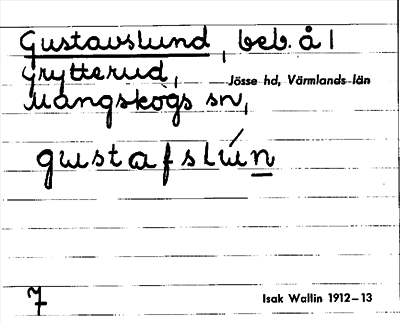 Gustavslund, beb. å 1
Grytterud, Jösse hd, Värmlands län
Mangskogs sn,
gustafslún
7
Isak Wallin 1912–13